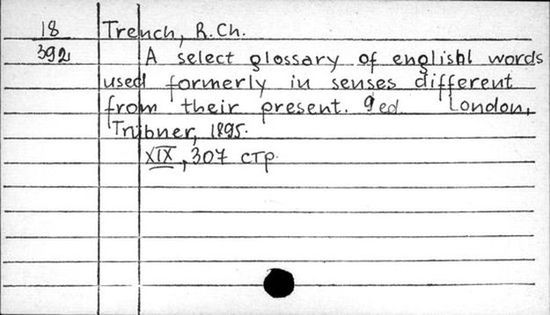 18 Trench, R.Ch.
392 A select glossary of english words
used formerly in senses different
from their present. 9ed. London,
Trübner, 1895.
XIX, 307 стр.